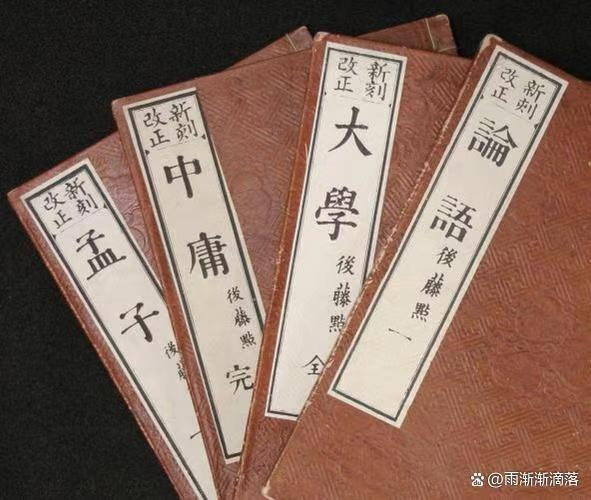 新刻
改正
論語 後藤點 一
新刻
改正
大學 後藤點 全
新刻
改正
中庸 後藤點 完
新刻
改正
孟子 後
@雨渐渐滴落